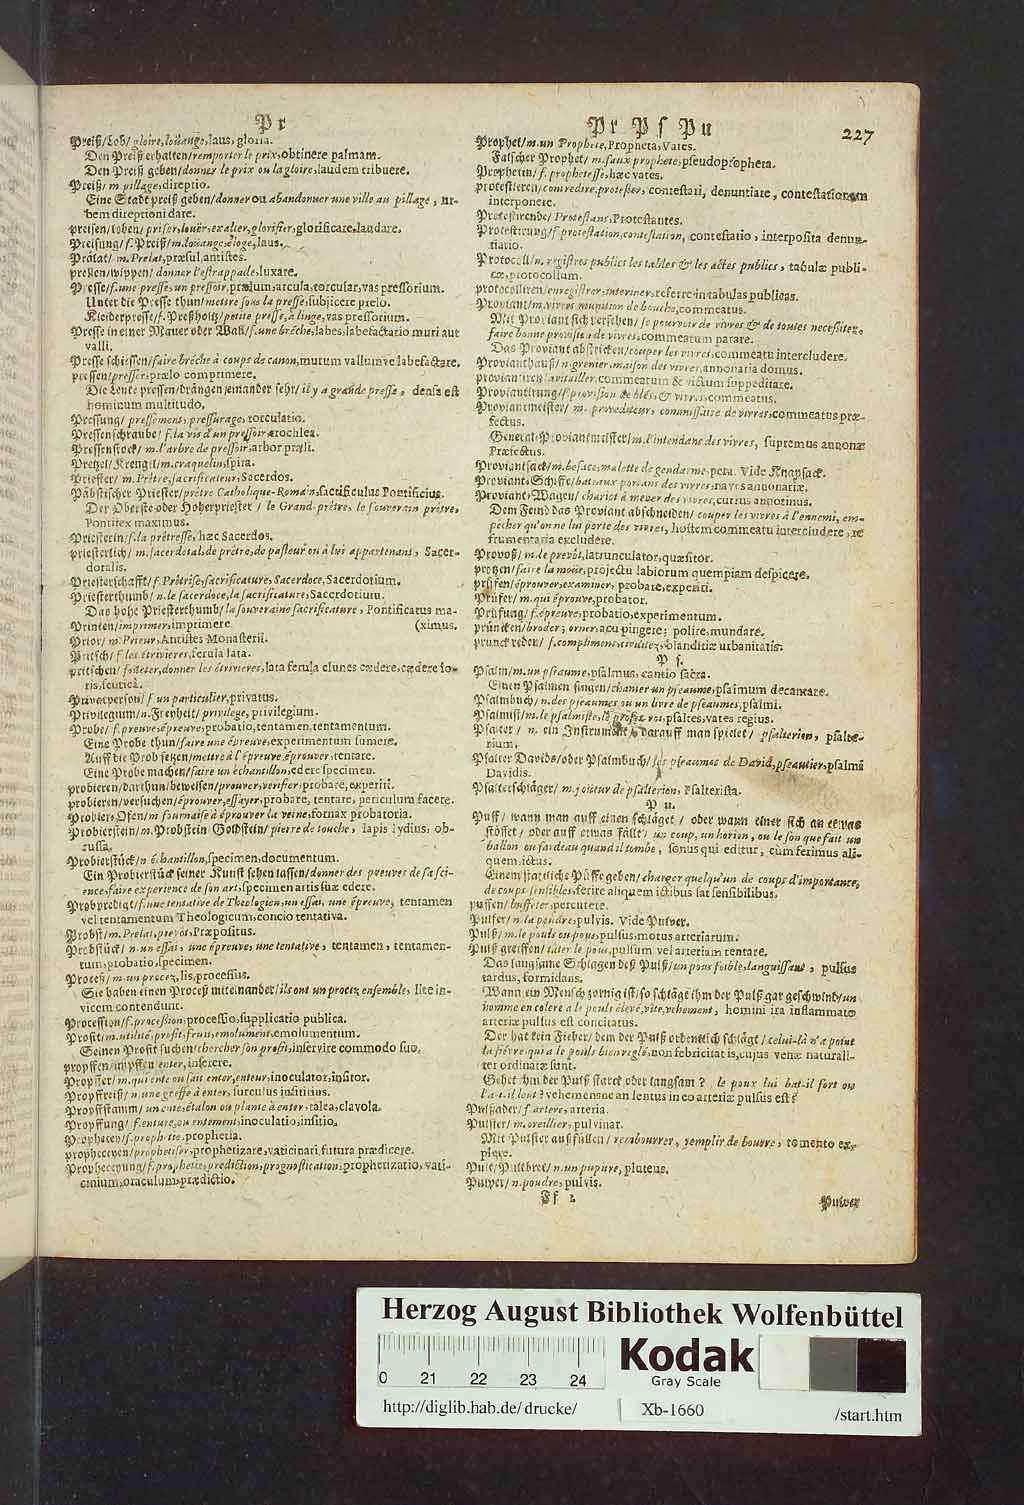 Pr
Preiß/Lob/ gloire, loüange, laus, gloria.
Den Preiß erhalten/ remporter le prix, obtinere palmam.
Den Preiß geben/ donner le prix ou la gloire, laudem tribuere.
Preiß/ m. pillage, direptio.
Eine Stadt preiß geben/ donner ou abandonner une ville au pillage, ur-
bem direptioni dare.
preisen/loben/ priser, louër, exalter, glorifier, glorificare, laudare.
Preisung/ f. Preiß/ m. loüange, éloge, laus.
Prälat/ m. Prelat, præsul, antistes.
prellen/wippen/ donner l'estrappade, luxare.
Presse/ f. une presse, un pressoir, prælum, arcula, torcular, vas pressorium.
Unter die Presse thun/ mettre sous la presse, subjicere prelo.
Kleiderpresse/ f. Preßholtz/ petite presse, à linge, vas pressorium.
Presse in einer Mauer oder Wall/ f. une brêche, labes, labefactatio muri aut
valli.
Presse schiessen/ faire brêche à coups de canon, murum vallumve labefactare.
pressen/ presser, prælo comprimere.
Die Leute pressen/drängen einander sehr/ il y a grande presse, densa est
hominum multitudo.
Pressung/ pressement, pressurage, torculatio.
Pressenschraube/ f. la vis d'un pressoir, cochlea.
Pressenstock/ m. l'arbre de pressoir, arbor præli.
Pretzel/ Krengel/ m. craquelin, spira.
Priester/ m. Prêtre, sacrificateur, Sacerdos.
Päbstischer Priester/ prêtre Catholique-Romain, sacrificulus Pontificius.
Der Oberste oder Hohepriester / le Grand-prêtre, le souverain prêtre,
Pontifex maximus.
Priesterin/ f. la prêtresse, hæc Sacerdos.
priesterlich/ m. sacerdotal, de prêtre, de pasteur ou à lui appartenant, Sacer-
dotalis.
Priesterschafft/ f. Prêtrise, sacrificature, Sacerdoce, Sacerdotium.
Priesterthumb/ n. le sacerdoce, la sacrificature, Sacerdotium.
Das hohe Priesterthumb/ la souveraine sacrificature, Pontificatus ma-
Printen/ imprimer, imprimere. (ximus.
Prior/ m. Prieur, Antistes Monasterii.
Pritsch/ f. les étrivieres, ferula lata.
pritschen/ foüeter, donner les étrivieres, lata ferula clunes cædere, cædere lo-
ris, scuticâ.
Privatperson/ f. un particulier, privatus.
Privilegium/ n. Freyheit/ privilege, privilegium.
Probe/ f. preuve, épreuve, probatio, tentamen, tentamentum.
Eine Probe thun/ faire une épreuve, experimentum sumere.
Auff die Prob setzen/ mettre à l'épreuve, éprouver, tentare.
Eine Probe machen/ faire un échantillon, edere specimen.
probieren/darthun/beweisen/ prouver, verifier, probare, experiri.
probieren/versuchen/ éprouver, essayer, probare, tentare, periculum facere.
Probier-Ofen/ m. fournaise à éprouver la veine, fornax probatoria.
Probierstein/ m. Probstein Goldstein/ pierre de touche, lapis lydius, ob-
russa.
Probierstück/ n. échantillon, specimen, documentum.
Ein Probierstück seiner Kunst sehen lassen/ donner des preuves de sa sci-
ence, faire experience de son art, specimen artis suæ edere.
Probpredigt/ f. une tentative de Theologien, un essai, une épreuve, tentamen
vel tentamentum Theologicum, concio tentativa.
Probst/ m. Prelat, prevôt, Præpositus.
Probstück/ n. un essai, une épreuve, une tentative, tentamen, tentamen-
tum, probatio, specimen.
Proceß/ m. un procez, lis, processus.
Sie haben einen Proceß miteinander/ ils ont un procez ensemble, lite in-
vicem contendunt.
Procession/ f. procession, processio, supplicatio publica.
Profit/ m. utilité, profit, fruit, emolument, emolumentum.
Seinen Profit suchen/ chercher son profit, inservire commodo suo.
propffen/ impffen enter, inserere.
Propffer/ m. qui ente ou fait enter, enteur, inoculator, insitor.
Propffreiß/ n. une greffe à enter, surculus insititius.
Propffstamm/ un ente, étalon ou plante à enter, talea, clavola.
Propffung/ f. enture, ou entement, inoculatio, insitio.
Prophacey/ f. prophetie, prophetia.
prophecyen/ prophetiser, prophetizare, vaticinari, futura prædicere.
Prophecyung/ f. prophetie, prediction, prognostication, prophetizatio, vati-
cinium, oraculum, prædictio.
Pr Ps Pu 227
Prophet/ m. un Prophete, Propheta, Vates.
Falscher Prophet/ m. faux prophete, pseudopropheta.
Prophetin/ f. prophetesse, hæc vates.
protestieren/ contredire, protester, contestari, denuntiare, contestationem
interponere.
Protestirende/ Protestans, Protestantes.
Protestirung/ f. protestation, contestation, contestatio, interposita denun-
tiatio.
Protocoll/ n. registres publics les tables & les actes publics, tabulæ publi-
cæ, protocollum.
protocolliren/ enregistrer, interiner, referre in tabulas publicas.
Proviant/ m. vivres munition de bouche, commeatus.
Mit Proviant sich versehen/ se pourvoir de vivres & de toutes necessitez,
faire bonne provision de vivres, commeatum parare.
Das Proviant abstricken/ couper les vivres, commeatu intercludere.
Provianthauß/ n. grenier, maison des vivres, annonaria domus.
proviantiren/ avitailler, commeatum & victum suppeditare.
Proviantirung/ f. provision de blés, & vivres, commeatus.
Proviantmeister/ m. provediteur, commissaire de vivres, commeatus præ-
fectus.
General-Proviantmeister/ m. l'intendant des vivres, supremus annonæ
Præfectus.
Proviantsack/ m. besace, malette de gendarme, pera. Vide Knapsack.
Proviant-Schiffe/ bateaux portans des vivres, naves annonariæ.
Proviant-Wagen/ chariot à mener des vivres, currus annotinus.
Dem Feind das Proviant abschneiden/ couper les vivres à l'ennemi, em-
pêcher qu'on ne lui porte des vivres, hostem commeatu intercludere, re
frumentaria excludere.
Provoß/ m. le prevôt, latrunculator, quæsitor.
protzen/ faire la moüe, projectu labiorum quempiam despicere.
prüfen/ éprouver, examiner, probare, experiri.
Prüfer/ m. qui éprouve, probator.
Prüfung/ f. épreuve, probatio, experimentum.
prüncken/ broder; orner, acu pingere; polire, mundare.
prunckreden/ f. compliment, civilitez, blanditiæ urbanitatis.
P s.
Psalm/ m. un pseaume, psalmus, cantio sacra.
Einen Psalmen singen/ chanter un pseaume, psalmum decantare.
Psalmbuch/ n. des pseaumes ou un livre de pseaumes, psalmi.
Psalmist/ m. le psalmiste, le profez roi, psaltes, vates regius.
Psalter / n. ein Instrument darauff man spielet / psalterion, psalte-
rium.
Psalter Davids/oder Psalmbuch/ les pseaumes de David, pseautier, psalmi
Davidis.
Psalterschläger/ m. joüeur de psalterion, Psalterista.
P u.
Puff/ wann man auff einen schläget / oder wann einer sich an etwas
stösset / oder auff etwas fällt/ un coup, un horion, ou le son que fait un
ballon ou fardeau quand il tombe, sonus qui editur, cum ferimus ali-
quem ictus.
Einem stattliche Püffe geben/ charger quelqu'un de coups d'importance,
de coups sensibles, ferire aliquem ictibus sat sensibilibus.
puffen/ buffeter, percutere.
Pulfer/ n. la poudre, pulvis. Vide Pulver.
Pulß/ m. le pouls ou pous, pulsus, motus arteriarum.
Pulß greiffen/ tâter le pous, pulsum vel arteriam tentare.
Das langsame Schlagen deß Pulß/ un pous foible, languissant, pulsus
tardus, formidans.
Wann ein Mensch zornig ist/ so schlägt ihm der Pulß gar geschwind/ un
homme en colere a le pouls élevé, vite, vehement, homini ira inflammato
arteriæ pulsus est concitatus.
Der hat kein Fieber/ dem der Pulß ordentlich schlägt/ celui-là n'a point
la fiévre qui a le pouls bien reglé, non febricitat is, cujus venæ naturali-
ter ordinatæ sunt.
Gehet ihm der Pulß starck oder langsam? le poux lui bat-il fort ou
l'a-t-il lent? vehemensne an lentus in eo arteriæ pulsus est?
Pulßader/ f. artere, arteria.
Pulster/ m. oreillier, pulvinar.
Mit Pulster außfüllen/ rembourrer, remplir de bourre, tomento ex-
plere.
Pult/Pultbret/ n. un pupitre, pluteus.
Pulver/ n. poudre, pulvis.
Ff 2 Pulver
Herzog August Bibliothek Wolfenbüttel
Kodak
Gray Scale
0 21 22 23 24
http://diglib.hab.de/drucke/ Xb-1660 /start.htm